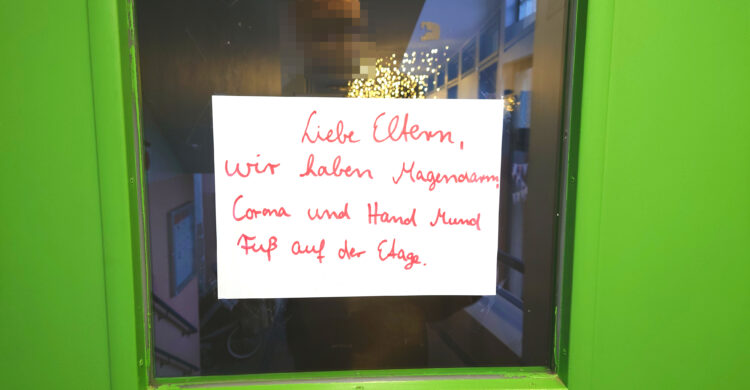 Liebe Eltern,
wir haben Magendarm,
Corona und Hand Mund
Fuß auf der Etage.